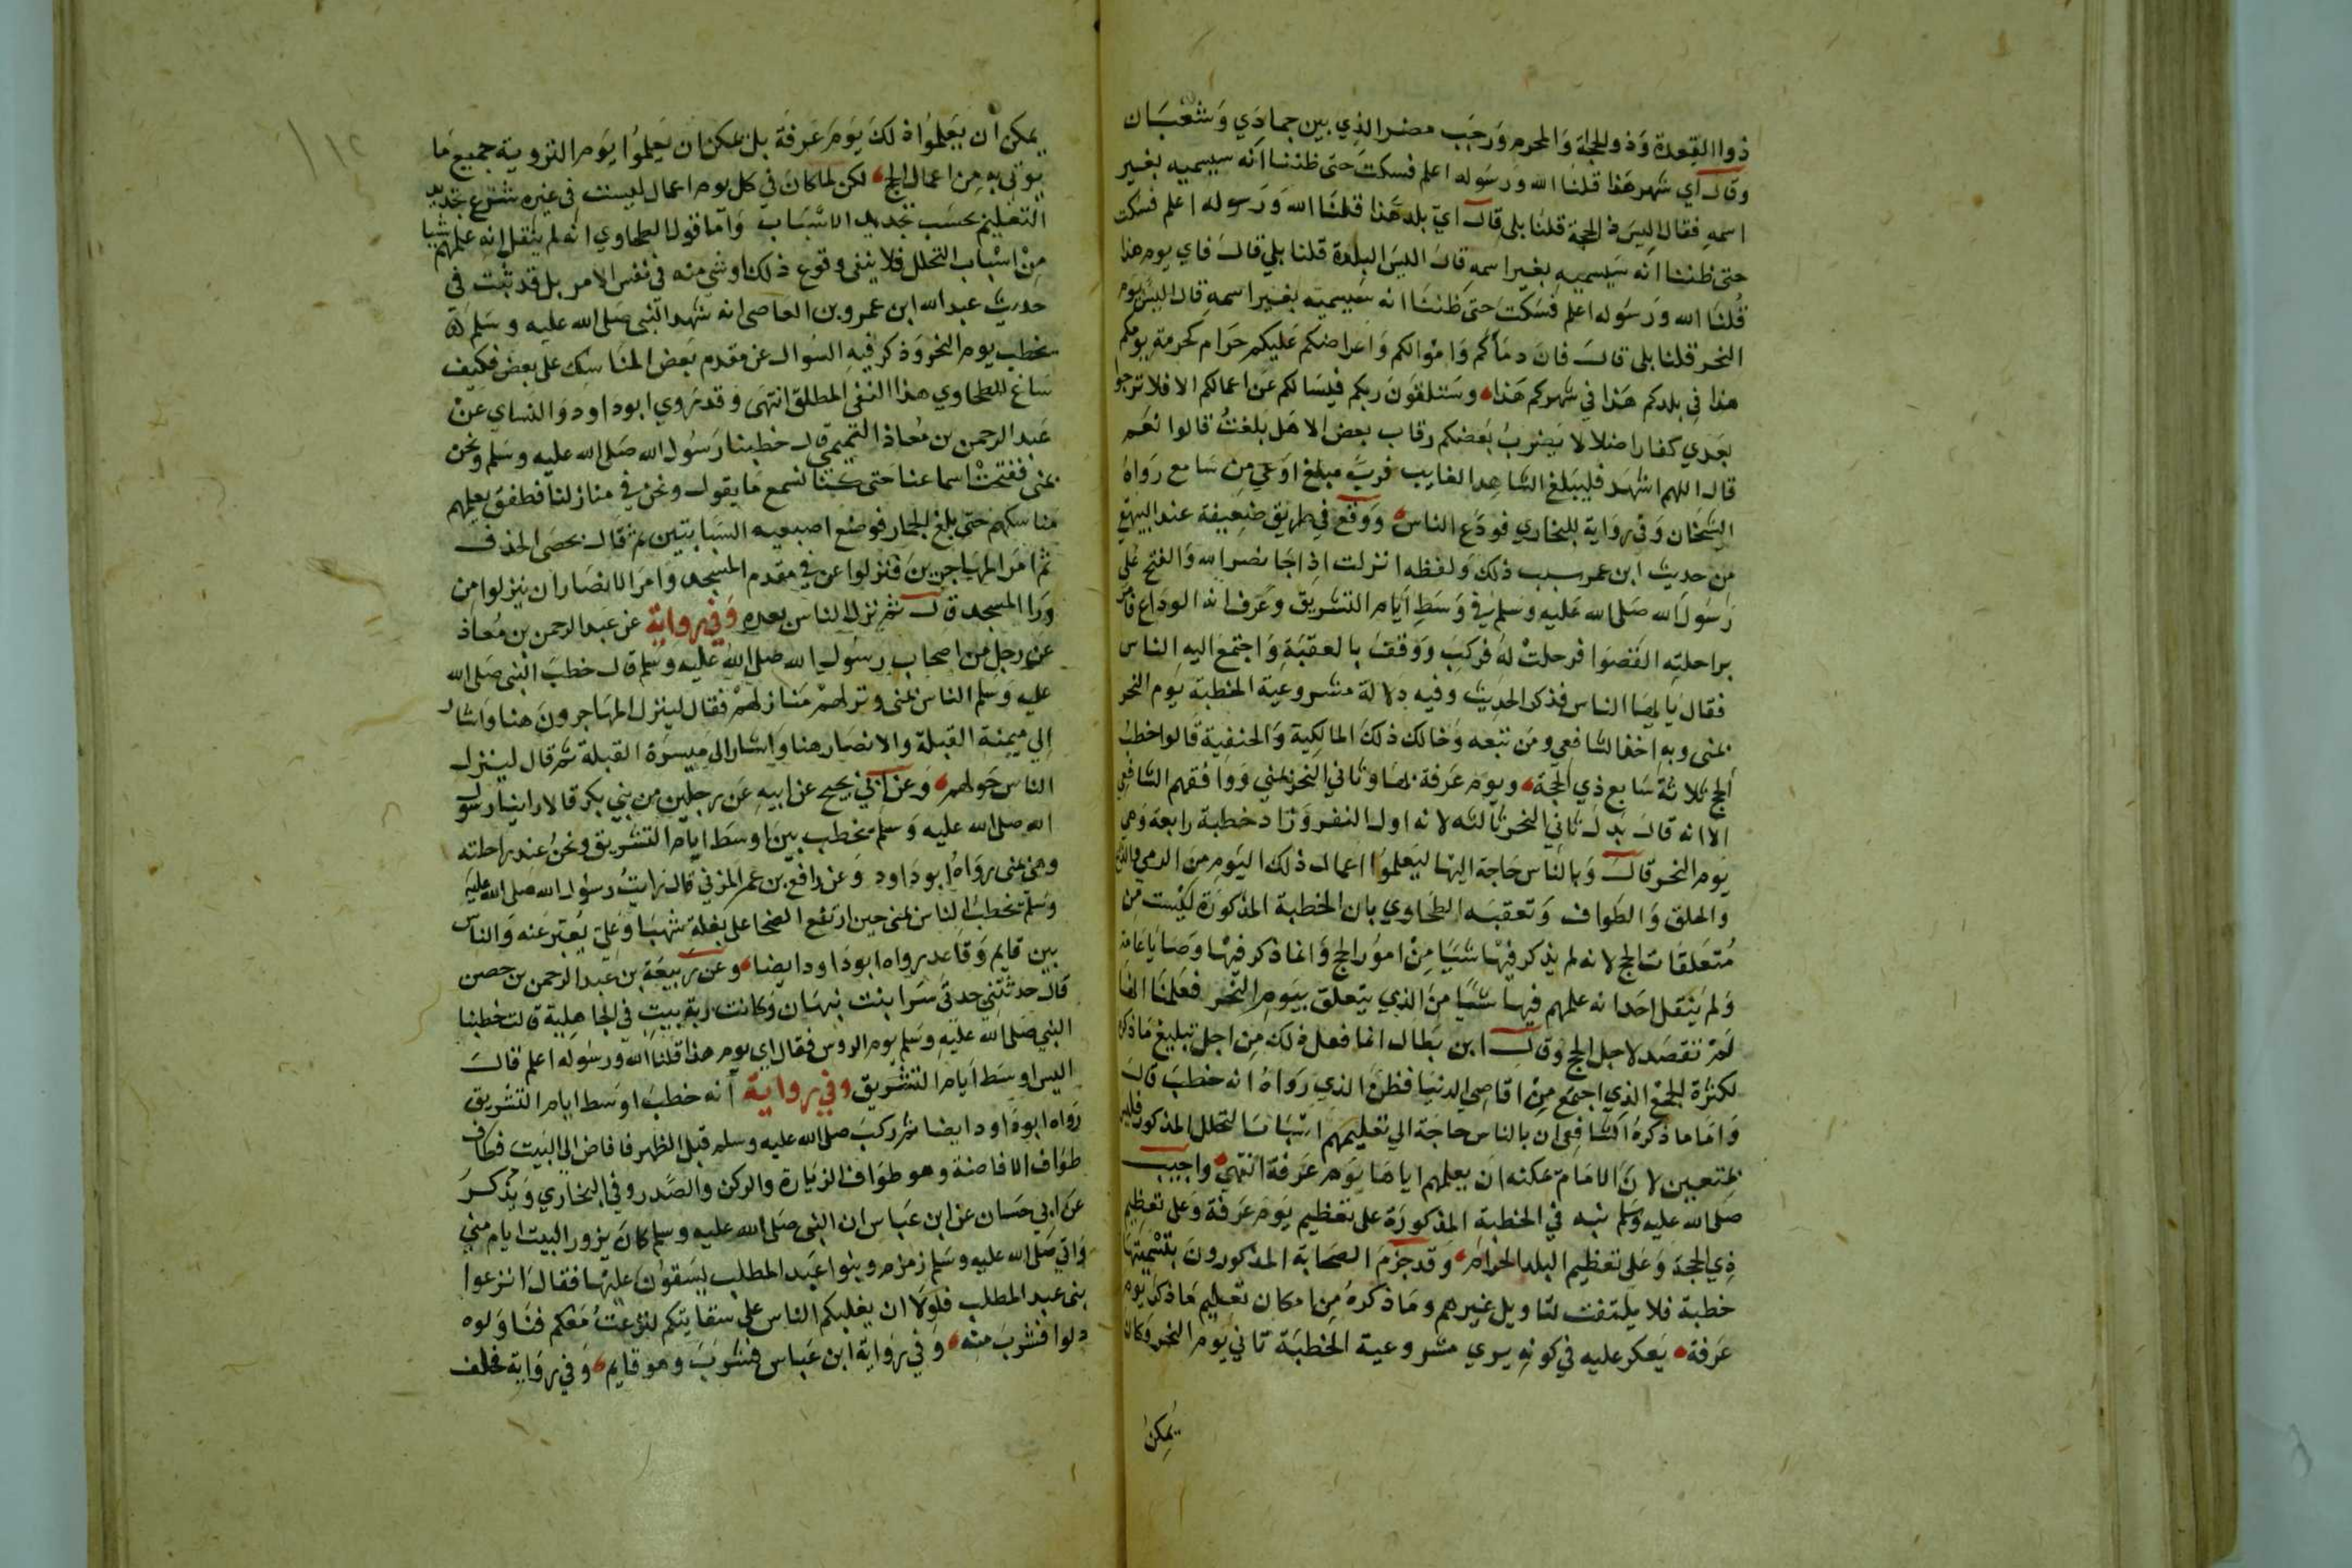 ذوا القعدة وذو الحجة والمحرم ورجب مضر الذي بين جمادي وشعبان
وقال اي شهر هذا قلنا الله ورسوله اعلم فسكت حتى ظننا انه سيسميه بغير
اسمه فقال اليس ذا الحجة قلنا بلى قال اي بلد هذا قلنا الله ورسوله اعلم فسكت
حتى ظننا انه سيسميه بغير اسمه قال اليس البلدة قلنا بلي قال فاي يوم هذا
قلنا الله ورسوله اعلم فسكت حتى ظننا انه سيسميه بغير اسمه قال اليس يوم
النحر قلنا بلى قال فان دماكم واموالكم واعراضكم عليكم حرام كحرمة يومكم
هذا في بلدكم هذا في شهركم هذا وستلقون ربكم فيسالكم عن اعمالكم الا فلا ترجوا
بعدي كفارا ضلالا يضرب بعضكم رقاب بعض الا هل بلغت قالوا نعم
قال اللهم اشهد فليبلغ الشاهد الغايب فرب مبلغ اوعي من سامع رواه
الشيخان وفي رواية للبخاري فودع الناس ووقع في طريق ضعيفة عند البيهقي
من حديث ابن عمر سبب ذلك ولفظه انزلت اذا جا نصر الله والفتح على
رسول الله صلى الله عليه وسلم في وسط ايام التشريق وعرف انه الوداع فامر
براحلته القصوا فرحلت له فركب ووقف بالعقبة واجتمع اليه الناس
فقال يا ايها الناس فذكر الحديث وفيه دلالة مشروعية الخطبة يوم النحر
بمنى وبه اخذ الشافعي ومن تبعه وخالف ذلك المالكية والحنفية قالوا خطب
الحج ثلاثة سابع ذي الحجة ويوم عرفة بها وثاني النحر بمني ووافقهم الشافعي
الا انه قال بدل ثاني النحر ثالثه لانه اول النفر وزاد خطبة رابعة وهي
يوم النحر قال وبالناس حاجة اليها ليعلموا اعمال ذلك اليوم من الرمي والذبح
والحلق والطواف وتعقبه الطحاوي بان الخطبة المذكورة ليست من
متعلقات الحج لانه لم يذكر فيها شيا من امور الحج وانما ذكر فيها وصايا عامة
ولم ينقل احد انه علمهم فيها شيا من الذي يتعلق بيوم النحر فعلمنا انها
لم تقصد لاجل الحج وقال ابن بطال انما فعل ذلك من اجل تبليغ ما ذكره
لكثرة الجمع الذي اجتمع من اقاصي الدنيا فظن الذي رواه انه خطب قال
واما ما ذكره الشافعي ان بالناس حاجة الي تعليمهم اسباب التحلل المذكور فليس
بمتعين لان الامام يمكنه ان يعلمهم اياها يوم عرفة انتهي واجيب
صلى الله عليه وسلم نبه في الخطبة المذكورة على تعظيم يوم عرفة وعلى تعظيم
ذي الحجة وعلى تعظيم البلد الحرام وقد جزم الصحابة المذكورون بتسميتها
خطبة فلا يلتفت لتاويل غيرهم وما ذكره من امكان تعليم ما ذكر يوم
عرفة يعكر عليه في كونه يري مشروعية الخطبة ثاني يوم النحر وكان
يمكن
يمكن ان يعلموا ذلك يوم عرفة بل يمكن ان يعلموا يوم التروية جميع ما
يوتي به من اعمال الحج لكن لما كان في كل يوم اعمال ليست في غيره شرع تجديد
التعليم بحسب تجديد الاسباب واما قول الطحاوي انه لم ينقل انه علمهم شيا
من اسباب التحلل فلا ينفى وقوع ذلك او شي منه في نفس الامر بل قد ثبت في
حديث عبد الله ابن عمرو بن العاصى انه شهد النبى صلى الله عليه وسلم
يخطب يوم النحر وذكر فيه السوال عن مقدم بعض المناسك على بعض فكيف
ساغ للطحاوي هذا النفى المطلق انتهى وقد روي ابو داود والنساي عن
عبد الرحمن بن معاذ التيمي قال خطبنا رسول الله صلى الله عليه وسلم ونحن
بمنى ففتحت اسماعنا حتى كنا نسمع ما يقول ونحن في منازلنا فطفق يعلمهم
مناسكهم حتى بلغ الجمار فوضع اصبعيه السبابتين ثم قال بحصى الخذف
ثم امر المهاجرين فنزلوا في مقدم المسجد وامر الانصار ان ينزلوا من
ورا المسجد قال ثم نزل الناس بعده وفي رواية عن عبد الرحمن بن معاذ
عن رجل من اصحاب رسول الله صلى الله عليه وسلم قال خطب النبى صلى الله
عليه وسلم الناس بمنى ونزلهم منازلهم فقال لينزل المهاجرون هنا واشار
الي ميمنة القبلة والانصار هنا واشار الى ميسرة القبلة ثم قال لينزل
الناس حولهم وعن ابي نجيح عن ابيه عن رجلين من بني بكر قالا راينا رسول
الله صلى الله عليه وسلم يخطب بين اوسط ايام التشريق ونحن عند راحلته
وهي بمنى رواه ابو داود وعن رافع بن عمر المزني قال رايت رسول الله صلى الله عليه
وسلم يخطب الناس بمنى حين ارتفع الضحا على بغلة شهبا وعلي يعبر عنه والناس
بين قايم وقاعد رواه ابو داود ايضا وعن ربيعة بن عبد الرحمن بن حصن
قال حدثتني جدتى سرا بنت نبهان وكانت ربة بيت في الجاهلية قالت خطبنا
النبي صلى الله عليه وسلم يوم الروس فقال اي يوم هذا قلنا الله ورسوله اعلم قال
اليس اوسط ايام التشريق وفي رواية انه خطب اوسط ايام التشريق
رواه ابو داود ايضا ثم ركب صلى الله عليه وسلم قبل الظهر فافاض الى البيت فطاف
طواف الافاضة وهو طواف الزيارة والركن والصدر وفي البخاري ويذكر
عن ابي حسان عن ابن عباس ان النبى صلى الله عليه وسلم كان يزور البيت ايام مني
واتي صلى الله عليه وسلم زمزم وبنوا عبد المطلب يسقون عليها فقال انزعوا
بنى عبد المطلب فلولا ان يغلبكم الناس على سقايتكم لنزعت معكم فناولوه
دلوا فشرب منه وفي رواية ابن عباس فشرب وهو قايم وفي رواية فحلف